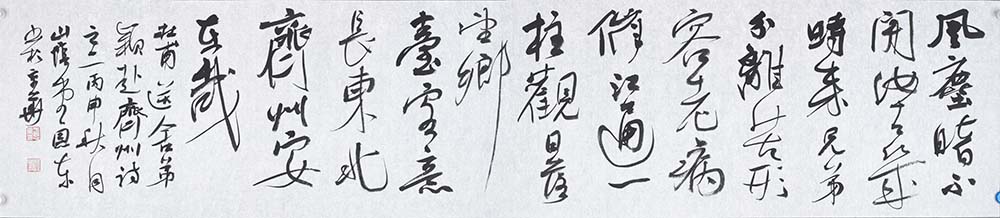 風塵暗不
開汝去幾
時来兄弟
分離苦形
容老病
催江通一
柱觀日落
望鄉
臺客意
長東北
齊州安
在哉
杜甫送舍弟
穎赴齊州詩
之一丙申秋月
山陰